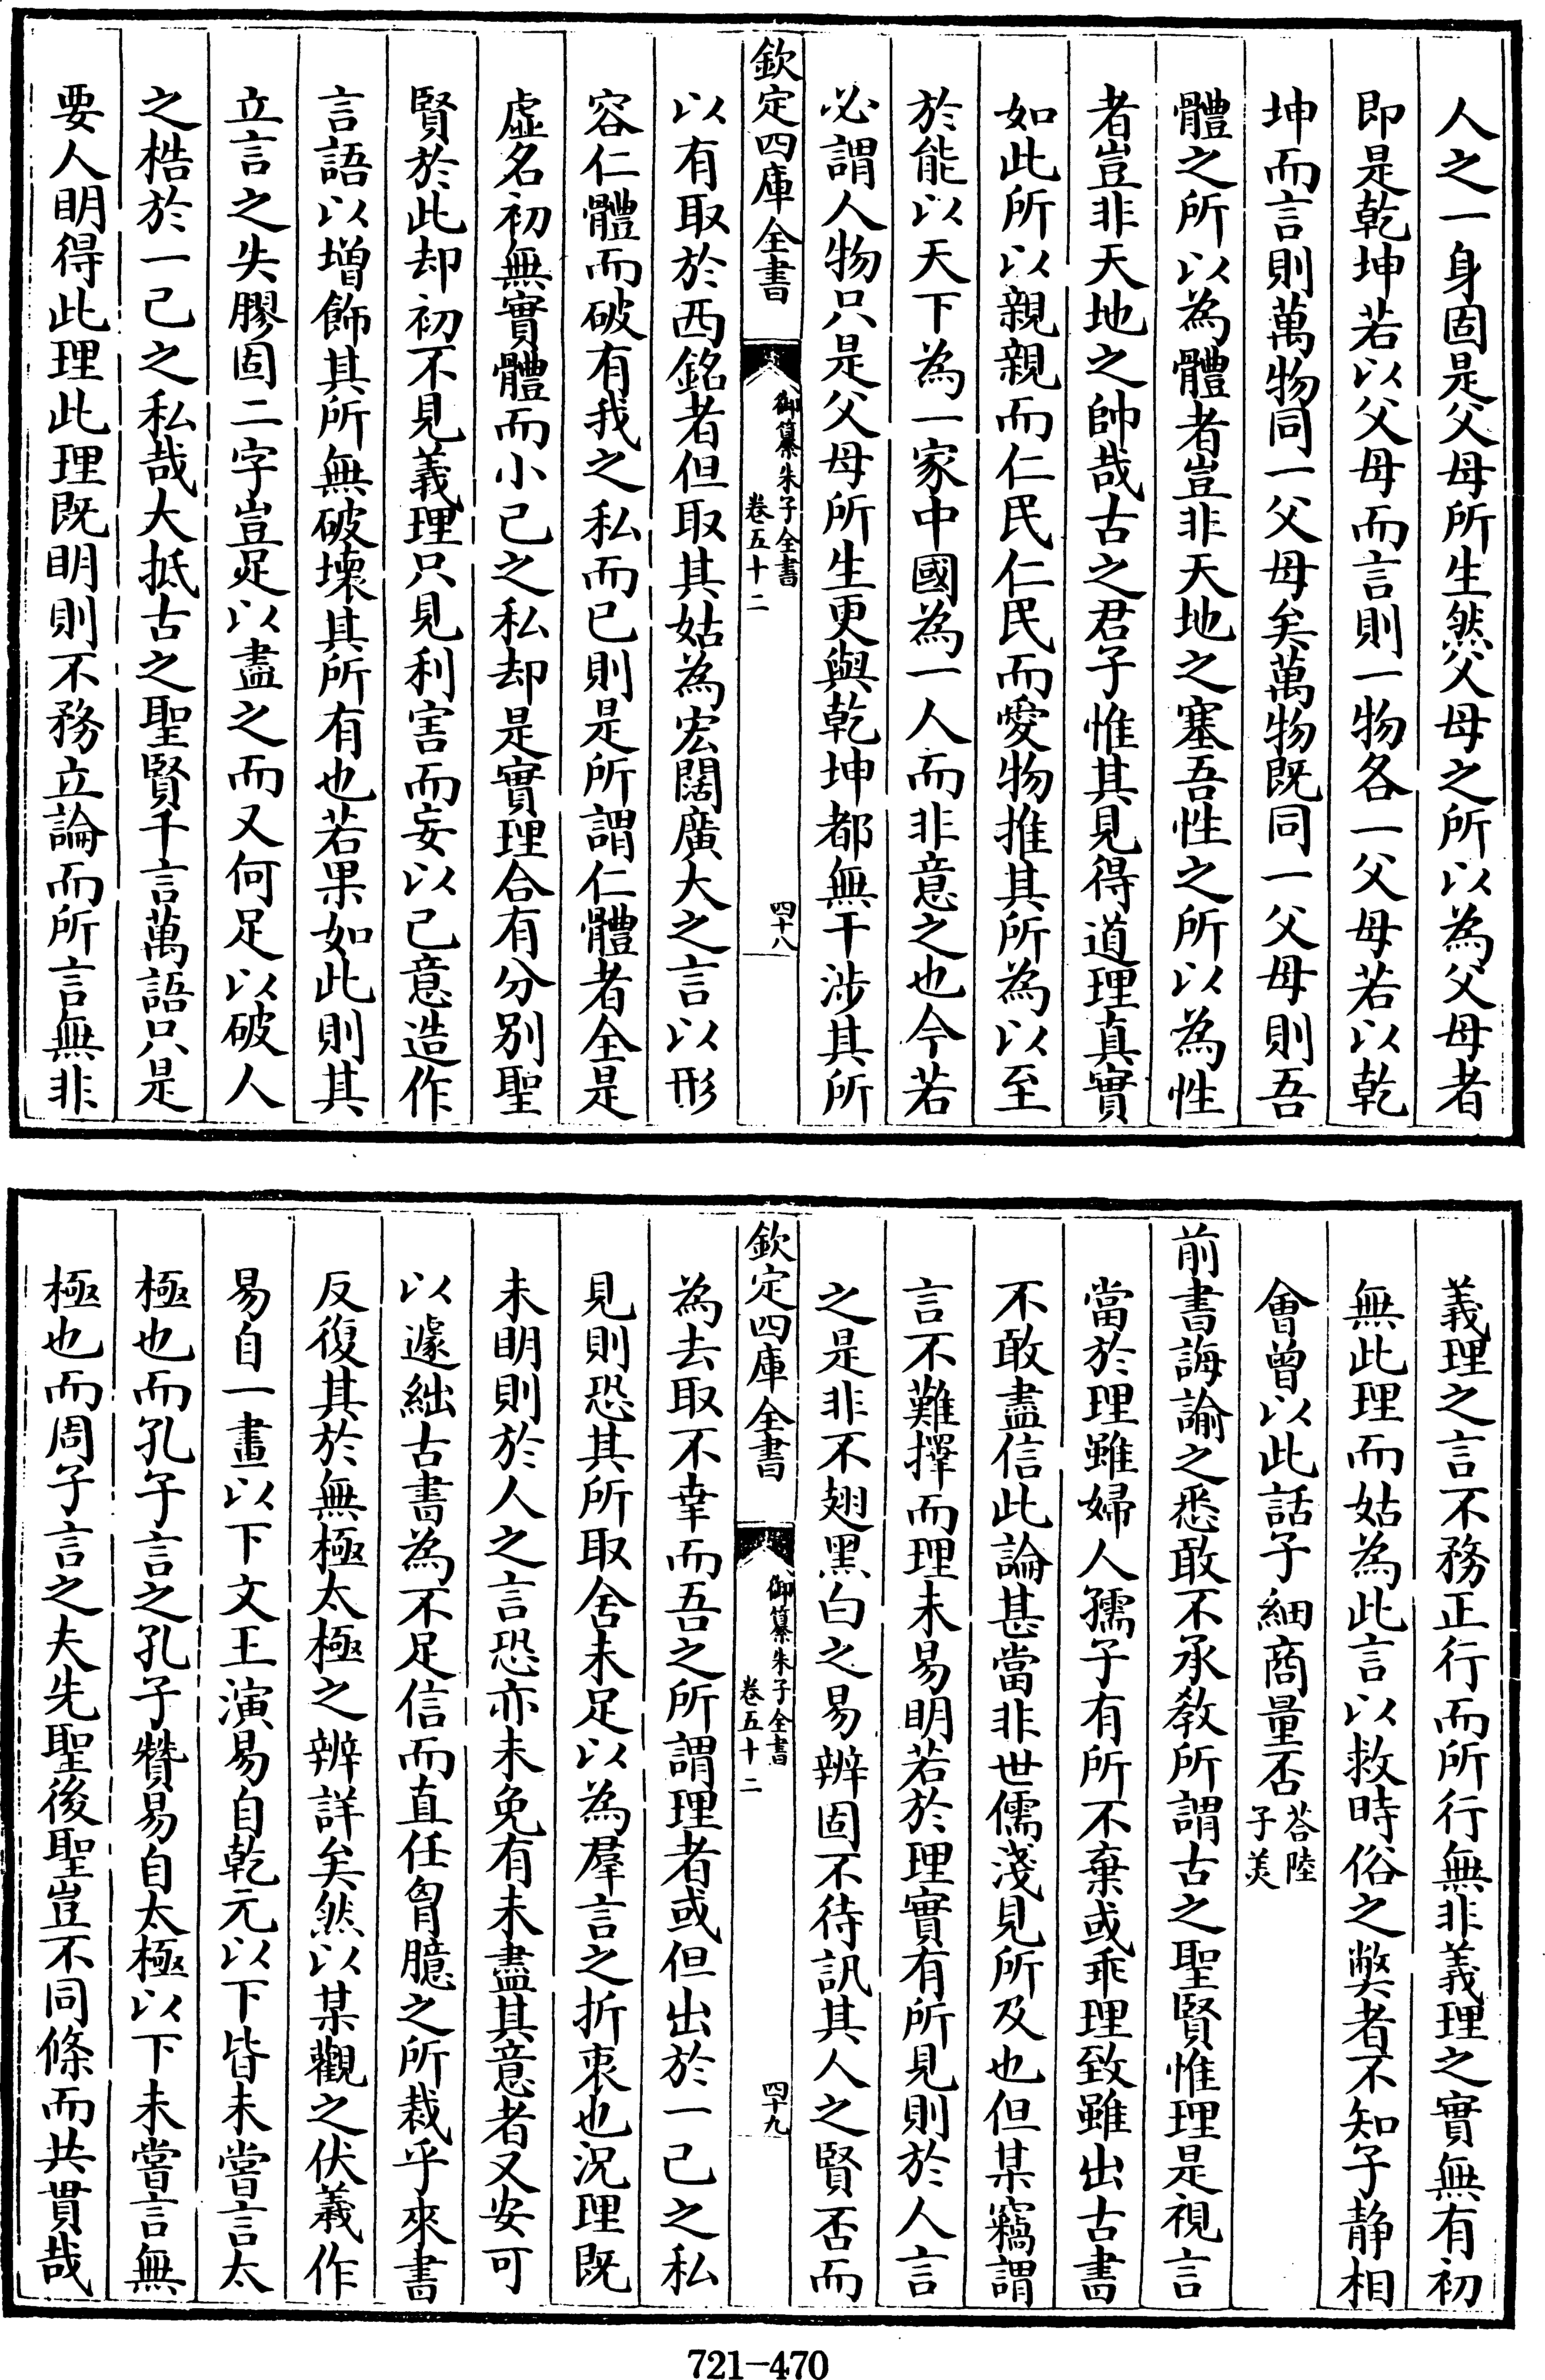 人之一身固是父母所生然父母之所以為父母者
即是乾坤若以父母而言則一物各一父母若以乾
坤而言則萬物同一父母矣萬物既同一父母則吾
體之所以為體者豈非天地之塞吾性之所以為性
者豈非天地之帥哉古之君子惟其見得道理真實
如此所以親親而仁民仁民而愛物推其所為以至
於能以天下為一家中國為一人而非意之也今若
必謂人物只是父母所生更與乾坤都無干涉其所
欽定四庫全書
御纂朱子全書
卷五十二
四十八
以有取於西銘者但取其姑為宏闊廣大之言以形
容仁體而破有我之私而已則是所謂仁體者全是
虛名初無實體而小己之私却是實理合有分别聖
賢於此却初不見義理只見利害而妄以己意造作
言語以增飾其所無破壞其所有也若果如此則其
立言之失膠固二字豈足以盡之而又何足以破人
之梏於一己之私哉大抵古之聖賢千言萬語只是
要人明得此理此理既明則不務立論而所言無非
義理之言不務正行而所行無非義理之實無有初
無此理而姑為此言以救時俗之弊者不知子静相
會曾以此話子細商量否
荅陸
子美
前書誨諭之悉敢不承教所謂古之聖賢惟理是視言
當於理雖婦人孺子有所不棄或乖理致雖出古書
不敢盡信此論甚當非世儒淺見所及也但某竊謂
言不難擇而理未易明若於理實有所見則於人言
之是非不翅黑白之易辨固不待訊其人之賢否而
欽定四庫全書
御纂朱子全書
卷五十二
四十九
為去取不幸而吾之所謂理者或但出於一己之私
見則恐其所取舍未足以為羣言之折衷也況理既
未明則於人之言恐亦未免有未盡其意者又安可
以遽絀古書為不足信而直任胷臆之所裁乎來書
反復其於無極太極之辨詳矣然以某觀之伏羲作
易自一畫以下文王演易自乾元以下皆未嘗言太
極也而孔子言之孔子贊易自太極以下未嘗言無
極也而周子言之夫先聖後聖豈不同條而共貫哉
721-470